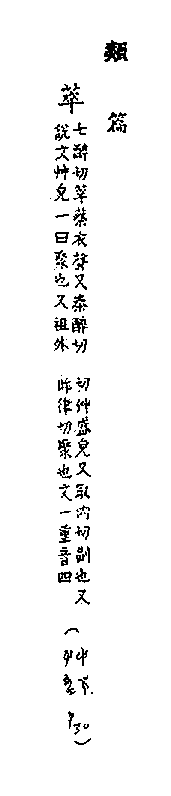 類篇
萃
七醉切萃蔡衣聲又秦醉切
說文艸皃一曰聚也又祖外
切艸盛皃又取內切副也又
昨律切聚也文一重音四